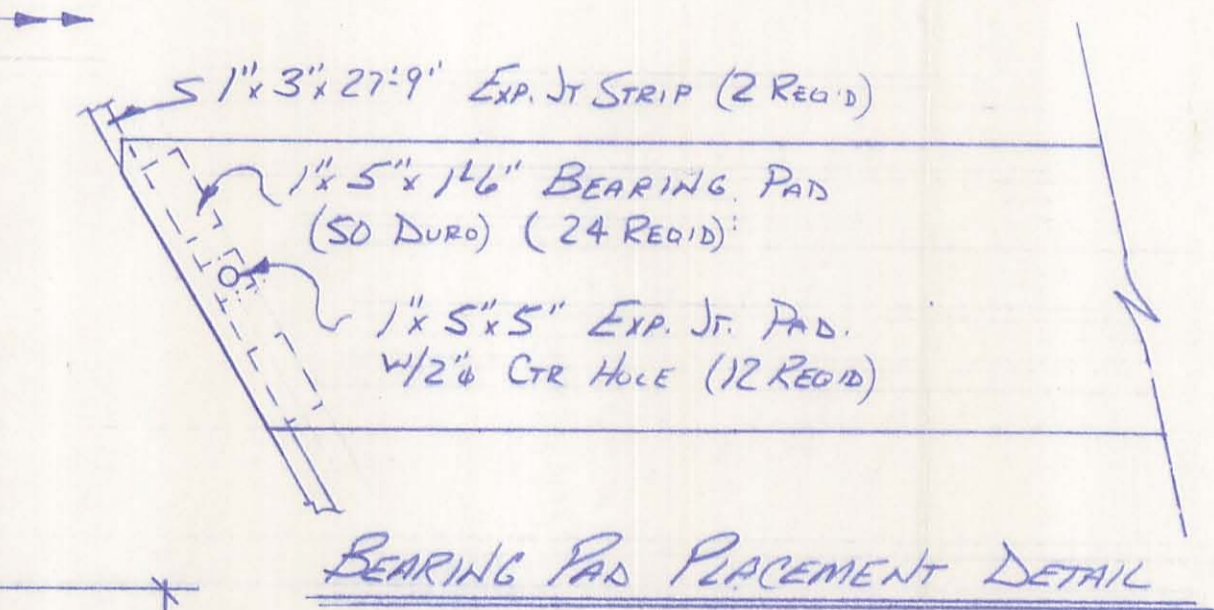 1" x 3" x 27'-9" EXP. JT STRIP (2 REQ'D)
1" x 5" x 1'-6" BEARING PAD
(50 DURO) (24 REQ'D)
1" x 5" x 5" EXP. JT. PAD.
W/2"ϕ CTR HOLE (12 REQ'D)
BEARING PAD PLACEMENT DETAIL